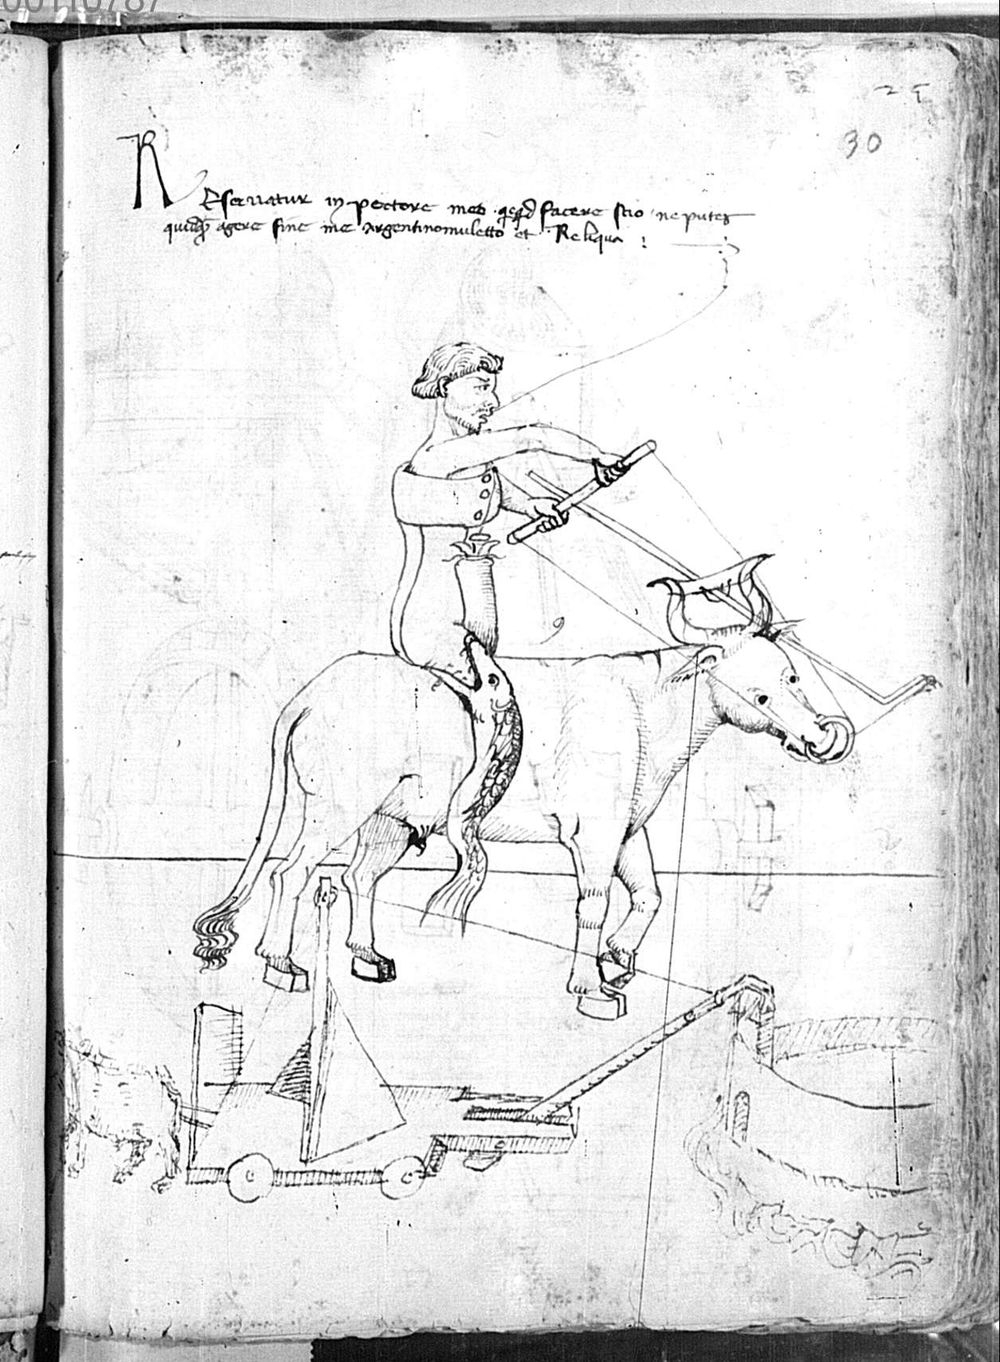 00110787
25
30
REseruatur in pectore meo qcqd facere scio ne putes
quidq agere sine me Argentinomuletto et Reliqua :